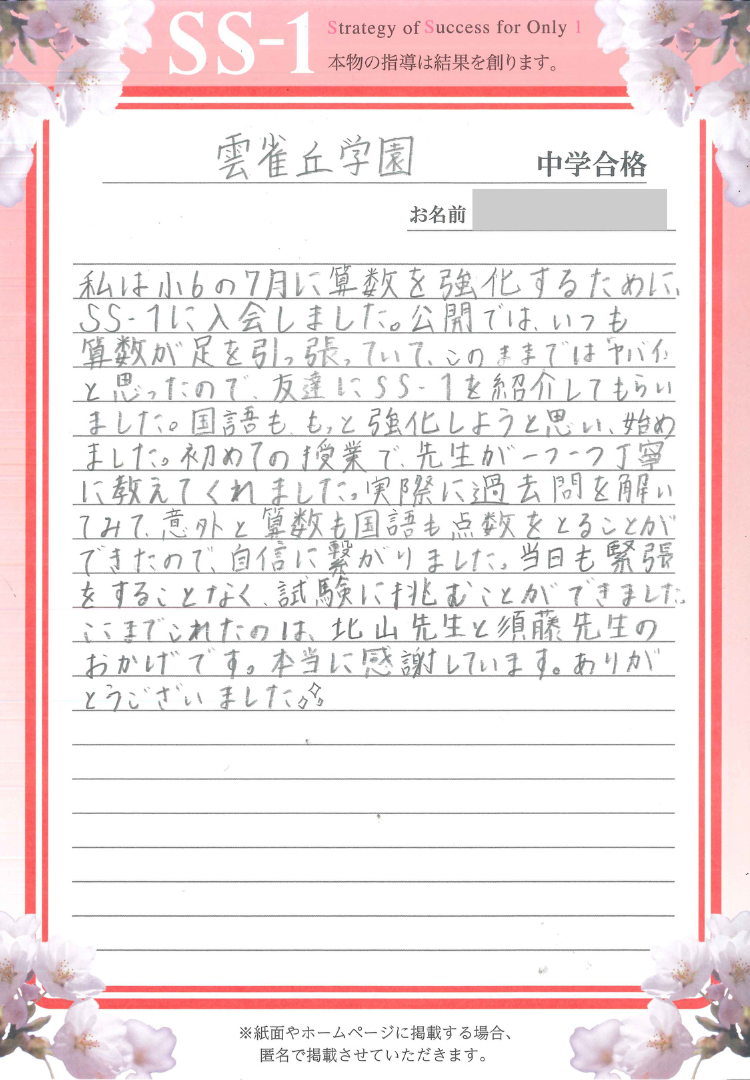 SS-1
Strategy of Success for Only 1
本物の指導は結果を創ります。
雲雀丘学園 中学合格
お名前
私は小6の7月に算数を強化するために、
SS-1に入会しました。公開では、いつも
算数が足を引っ張っていて、このままでは「ヤバイ」
と思ったので、友達にSS-1を紹介してもらい
ました。国語も、もっと強化しようと思い、始め
ました。初めての授業で、先生が一つ一つ丁寧
に教えてくれました。実際に過去問を解い
てみて、意外と算数も国語も点数をとることが
できたので、自信に繋がりました。当日も緊張
をすることなく、試験に挑むことができました。
ここまでこれたのは、北山先生と須藤先生の
おかげです。本当に感謝しています。ありが
とうございました。
※紙面やホームページに掲載する場合、
匿名で掲載させていただきます。